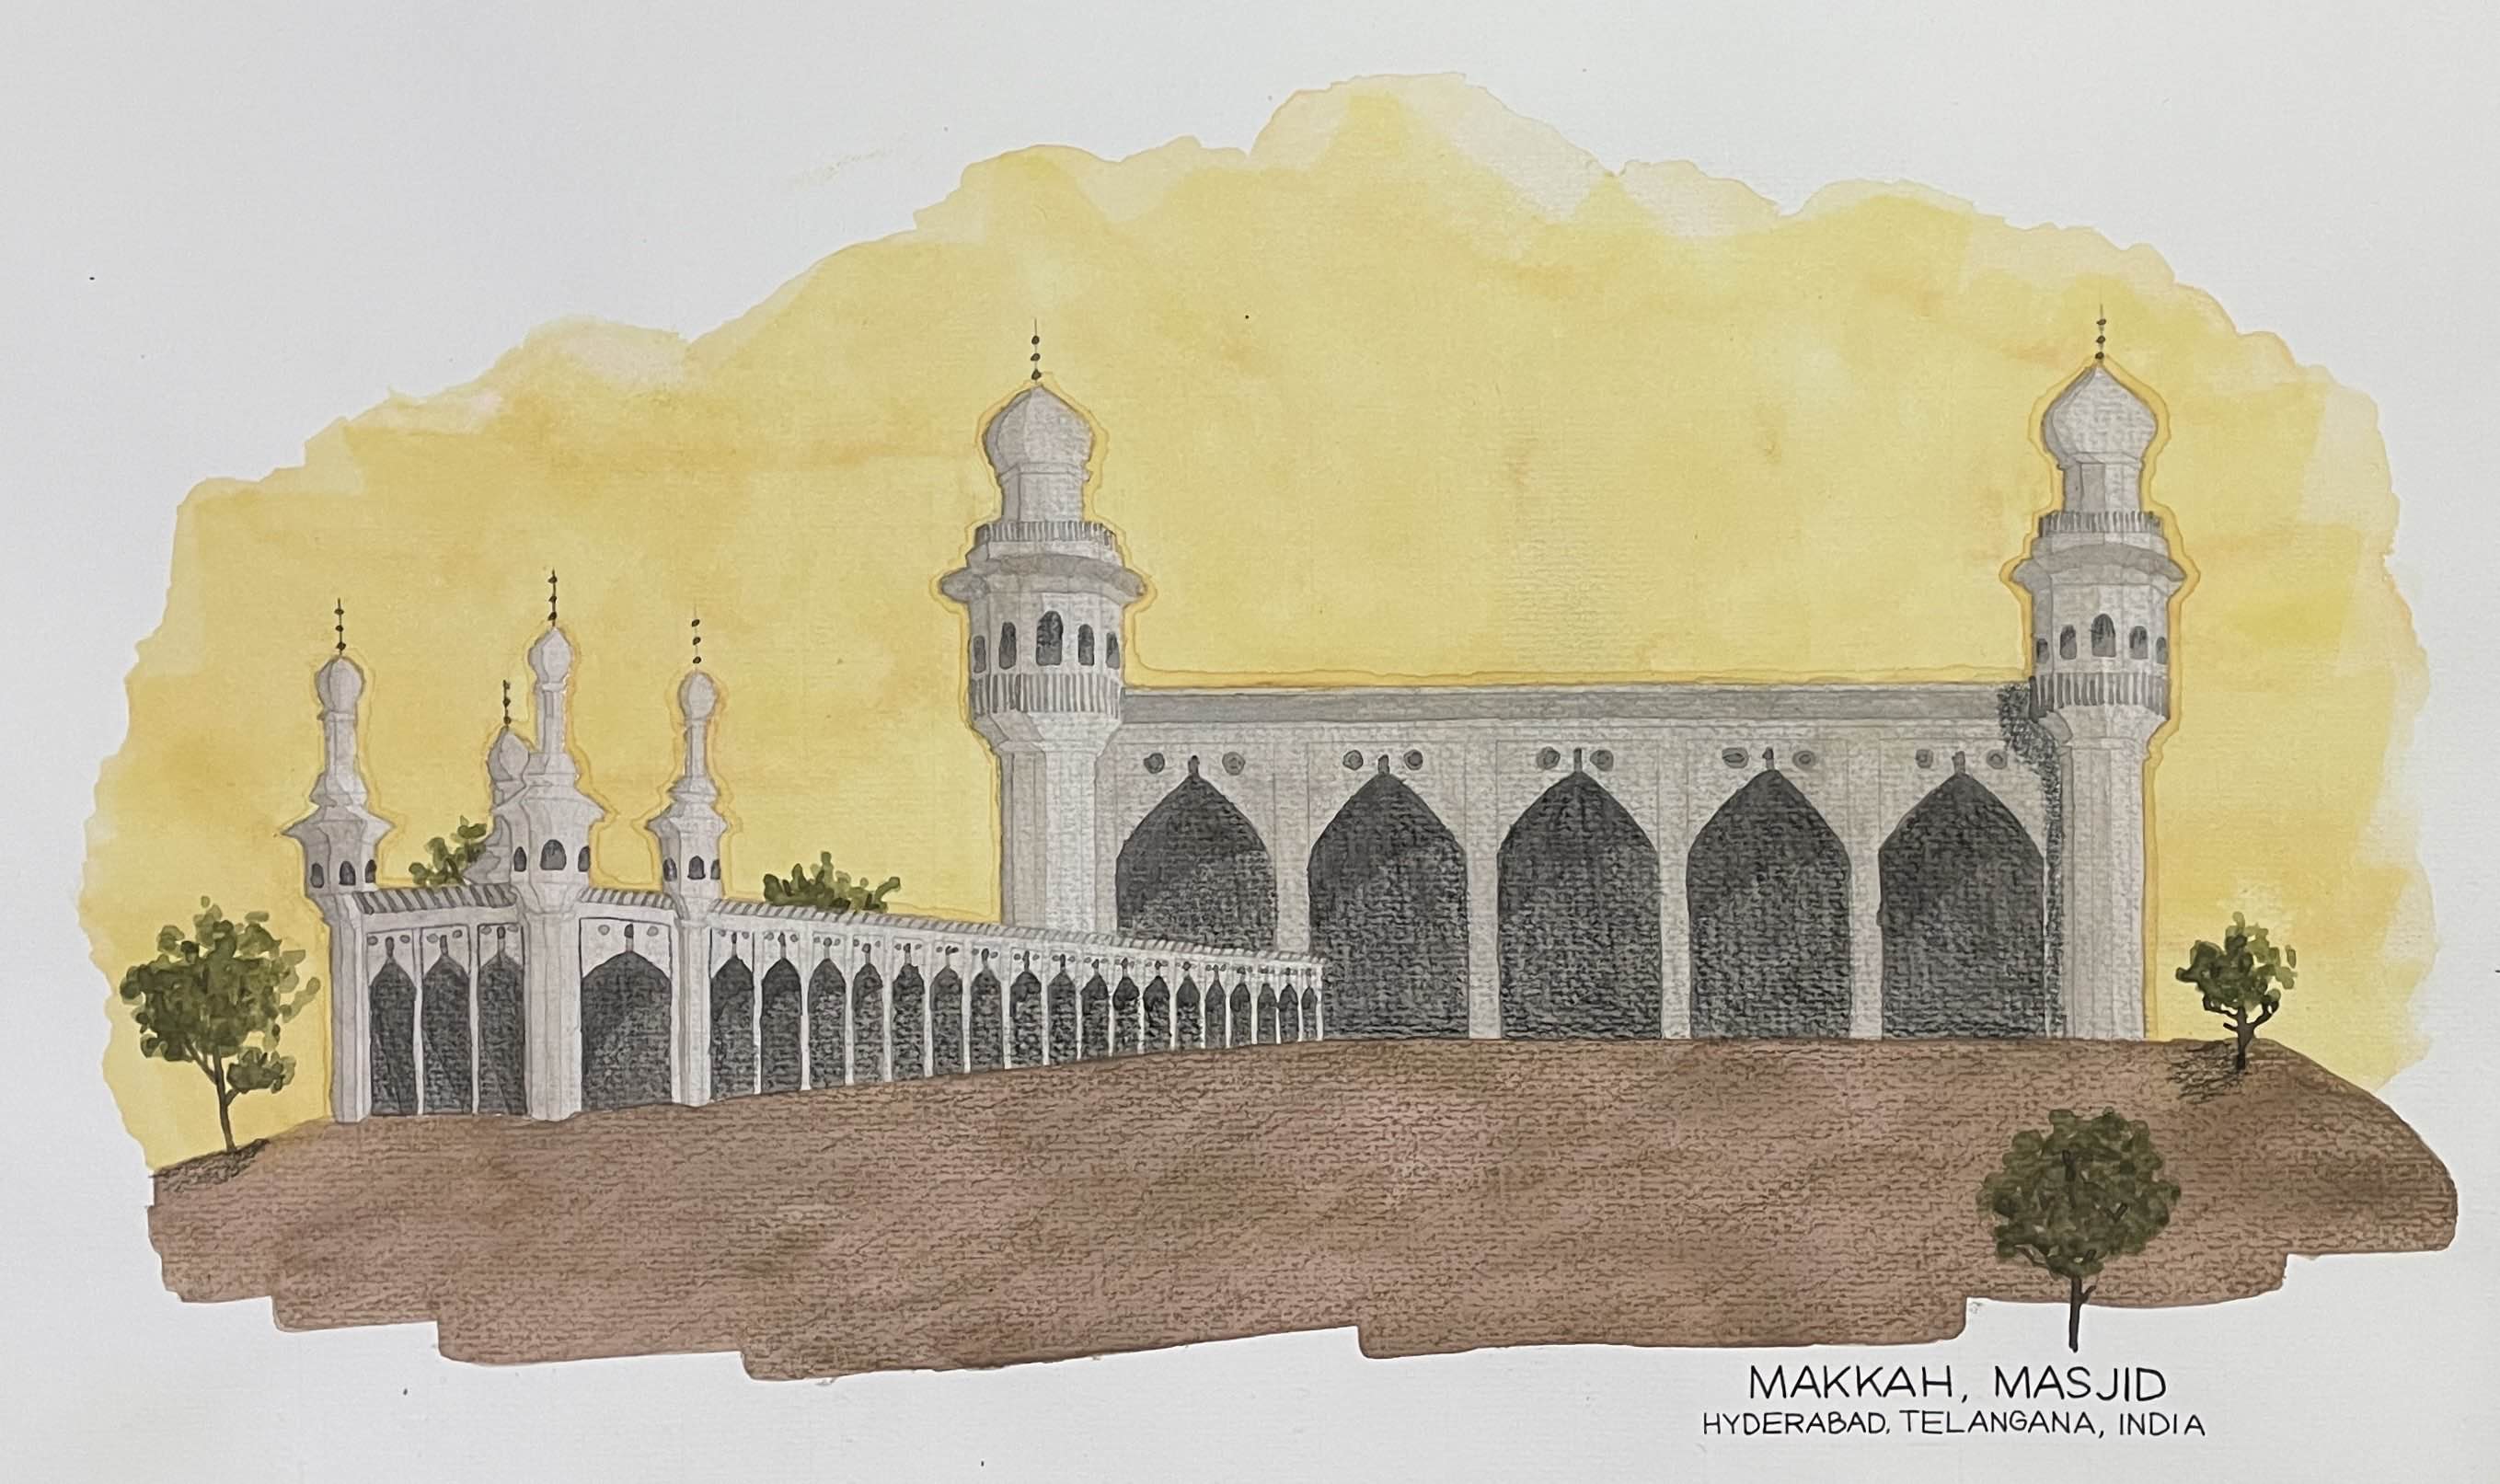 MAKKAH, MASJID
HYDERABAD, TELANGANA, INDIA